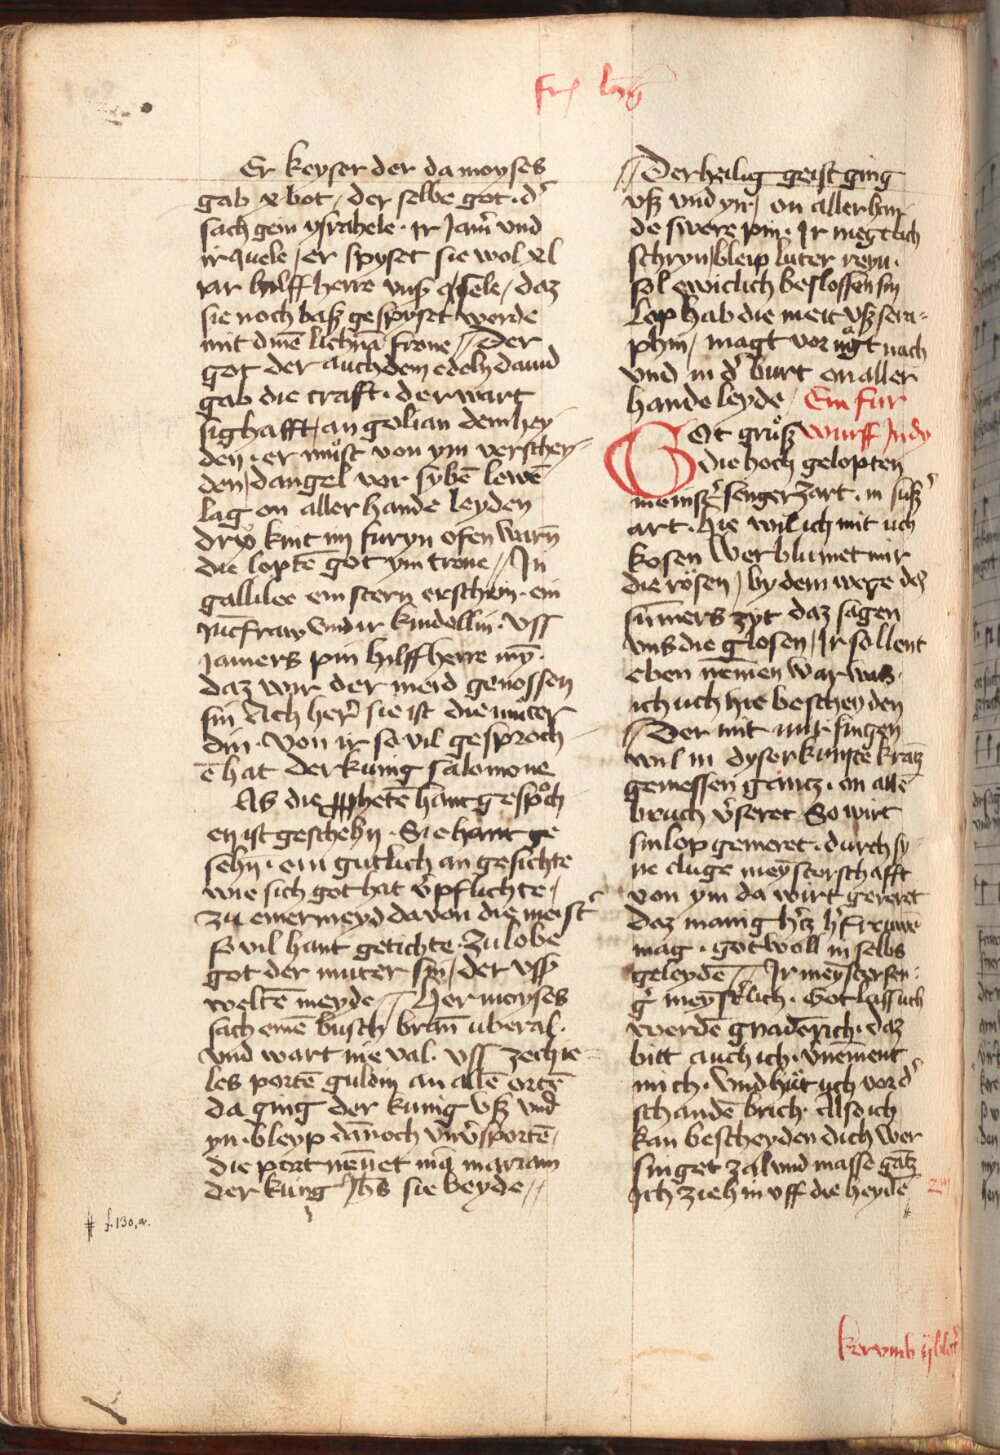 Er keyser der da moyses
gab x bot / der selbe got · d'
sach gein ysrahele · ir Jam̃ und
ir quele / er spyset sie wol xl
iar hilff herre vnß sele / daz
sie noch baß gespyset werde
mit dinē lichnā frone // Der
got der auch dem edeln dauid
gab die crafft · der wart
sighafft / an golian dem hey
den · er muͦst von ym verschey
den / daniel vor sybē lewē
lag on aller hande leyden
dry kint im furyn ofen warn̄
die loptē got ym trone // In
gallilee ein stern erschein · ein
Jucfraw vnd ir kindellin · vff
iamers pin hilff herre my̅ ·
daz wir der meid genossen
sin Ach her̃ sie ist die muͦter
din · von ir so vil gesproch
ē hat der kunig salomone
Als die ꝓphetē hant gesproch
en ist geschehn̄ · Sie hant ge
sehn̄ · ein gutlich an gesichte
wie sich got hat v'pflichte /
zu einer meyd da von die meist'
so vil hant getichte · Zu lobe
got der muter sin / der vff
weltē meyde // Her moyses
sach einē busch bran̄ uberal ·
vnd wart nie val · vff zechie
les portē guldin an allē ortē
da ging der kunig vß vnd
yn · bleyp dan̄och vnv'sportē /
die port nen̄et mā mariam
der kung Jhs̄ sie beyde //
// Der heilig geist ging
vß vnd yn / on aller han
de swere pin · Ir megtlich
schryn / bleip luter reyn ·
sol ewiclich beslossen sin
Lop hab die meit vß sera
phin / magt vor magt nach
vnd in d' burt on aller
hande leyde / Ein fur
Got gruͦß wurff Jn dy
die hoch gelopten
meinst' senger zart · in suß'
art · Hie wil ich mit uch
kosen Wer blumet mir
die rosen / by dem wege des
sum̄ers zyt daz sagen
vns die glosen / Ir sollent
eben nemen war was ·
ich uch hie bescheyden
// Der mit mir singen
wil in dyser kunste krātz
gemessen gantz · on allē
bruch v'seret So wirt
sin lop gemeret · durch sy
ne cluge meysterschafft
von ym da wirt gereret
daz manig h'tz h' frauwē
mag · got woll in selbs
geleydē // Ir meyster sen
g' meyst'lich · Got lass uch
werdē gnadē rich · daz
bitt auch ich · v'nement
mich · vnd huͤt uch vor d'
schandē brich · Also ich
kan bescheyden dich wer
singet zal vnd masse gātz
Ich zieh in vff die heydē
# f. 130, a.